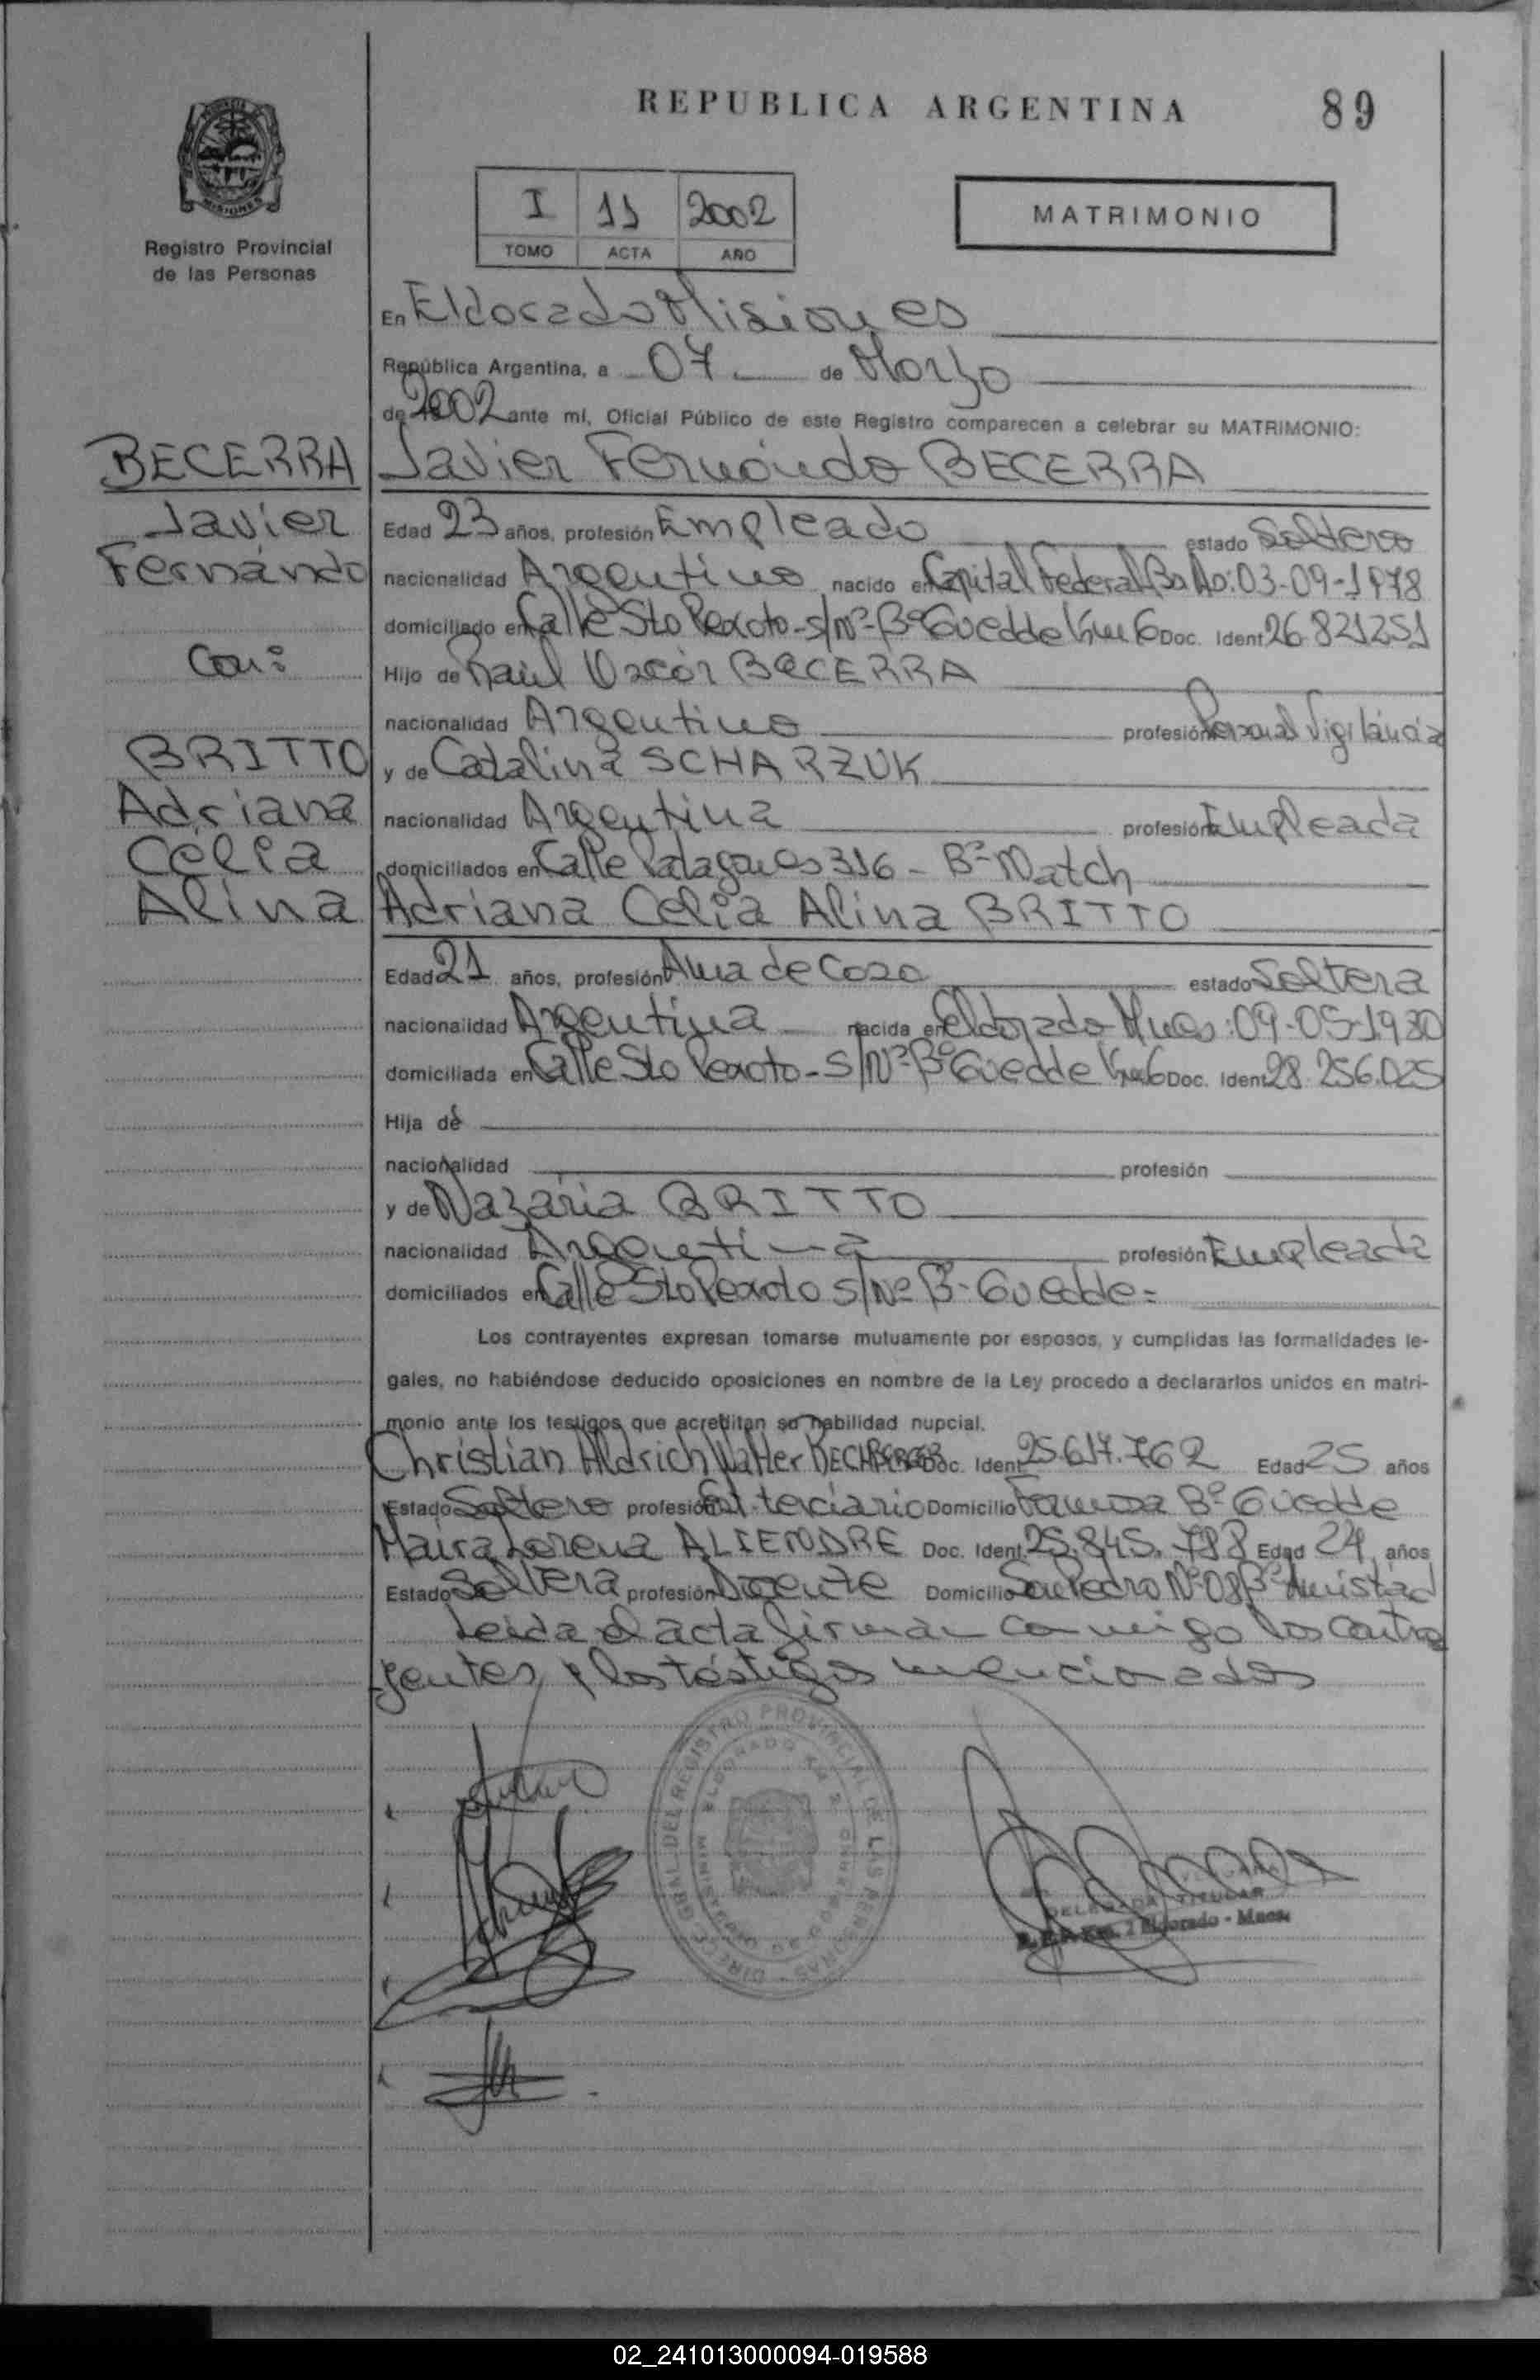 REPUBLICA ARGENTINA
89
MISIONES
Registro Provincial
de las Personas
I 11 2002
TOMO ACTA AÑO
MATRIMONIO
En Eldorado Misiones
República Argentina, a 07 de Marzo
de 2002 ante mí, Oficial Público de este Registro comparecen a celebrar su MATRIMONIO:
BECERRA
Javier
Fernándo
Con:
BRITTO
Adriana
Celia
Alina
Javier Fernándo BECERRA
Edad 23 años, profesión Empleado estado Soltero
nacionalidad Argentino nacido en Capital Federal Bs As: 03-09-1978
domiciliado en Calle Sto s/nº Bº Guedde Km 6 Doc. Ident. 26.821251
Hijo de Raúl BECERRA
nacionalidad Argentino profesión Personal Vigilancia
y de Catalina SCHARZUK
nacionalidad Argentina profesión Empleada
domiciliados en Calle Patagones 316 - Bº Match
Adriana Celia Alina BRITTO
Edad 21 años, profesión Ama de Casa estado Soltera
nacionalidad Argentina nacida en Eldorado Mnes: 09-05-1980
domiciliada en Calle Sto s/Nº Bº Guedde Km 6 Doc. Ident. 28.256.025
Hija de
nacionalidad profesión
y de Nazaria BRITTO
nacionalidad Argentina profesión Empleada
domiciliados en Calle Sto s/Nº Bº Guedde=
Los contrayentes expresan tomarse mutuamente por esposos, y cumplidas las formalidades le-
gales, no habiéndose deducido oposiciones en nombre de la Ley procedo a declararlos unidos en matri-
monio ante los testigos que acreditan su habilidad nupcial.
Christian Aldrich Walter BECHBERGER Doc. Ident. 25.617.762 Edad 25 años
Estado Soltero profesión Est. terciario Domicilio Formosa Bº Guedde
Maira Lorena ALIENDRE Doc. Ident. 25.845.788 Edad 24 años
Estado Soltera profesión Docente Domicilio San Pedro Nº 08 Bº Amistad
Leida el acta firman conmigo los contra
yentes y los testigos mencionados
DIREC. GRAL. DEL REGISTRO PROVINCIAL DE LAS PERSONAS
ELDORADO KM 2
DELEGADA TITULAR
R. P. P. Km. 2 Eldorado - Mnes.
02_241013000094-019588